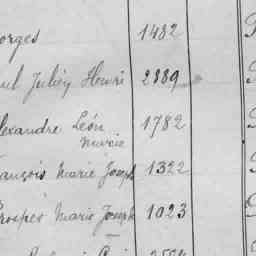 orges 1482
ul Julien Henri 2889
lexandre León 1782
Marie
rançois Marie Joseph 1322
rosper Marie Joseph 1023